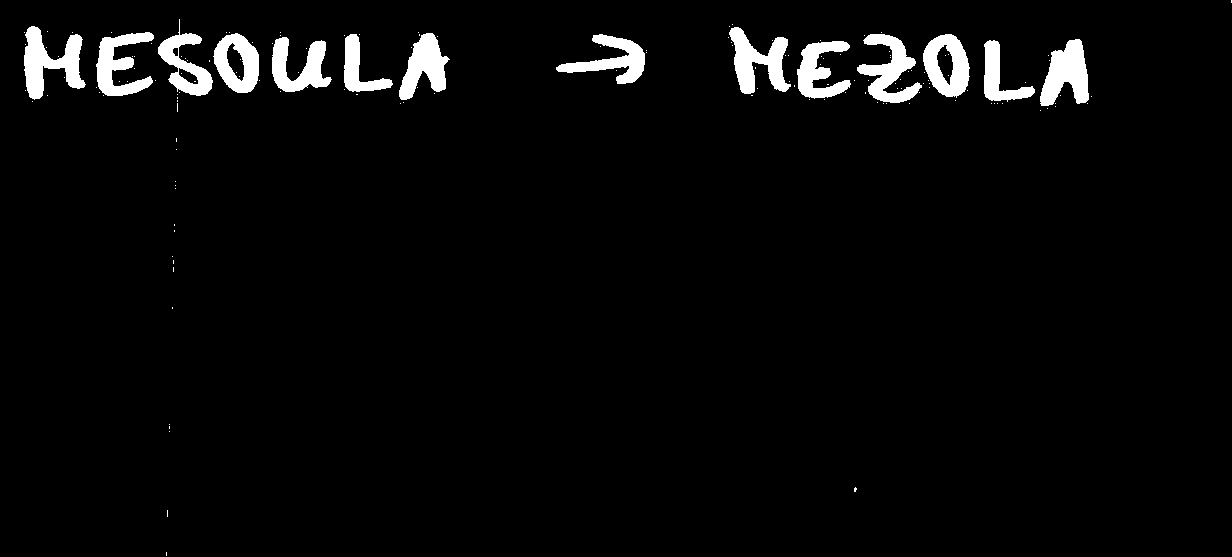 MESOULA → MEZOLA